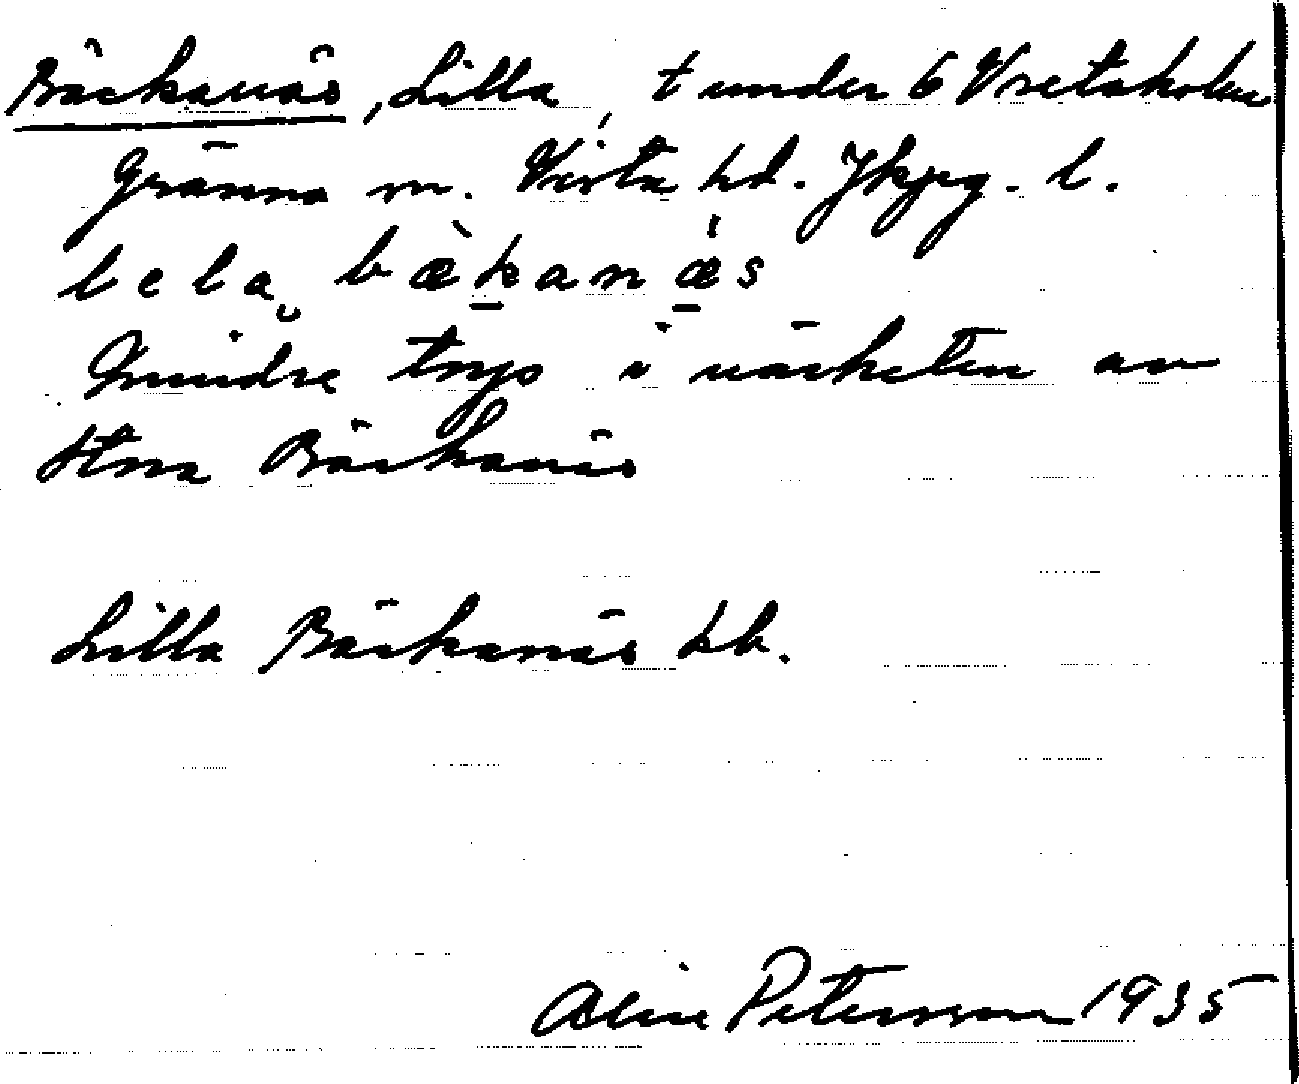 Bäckanäs, Lilla, t under 6 Vretaholm
Gränna m. Vista hd. Jkpg. l.
lela bækanæs
Mindre torp i närheten av
Stora Bäckanäs
Lilla Bäckanäs kb.
Aline Petersson 1935